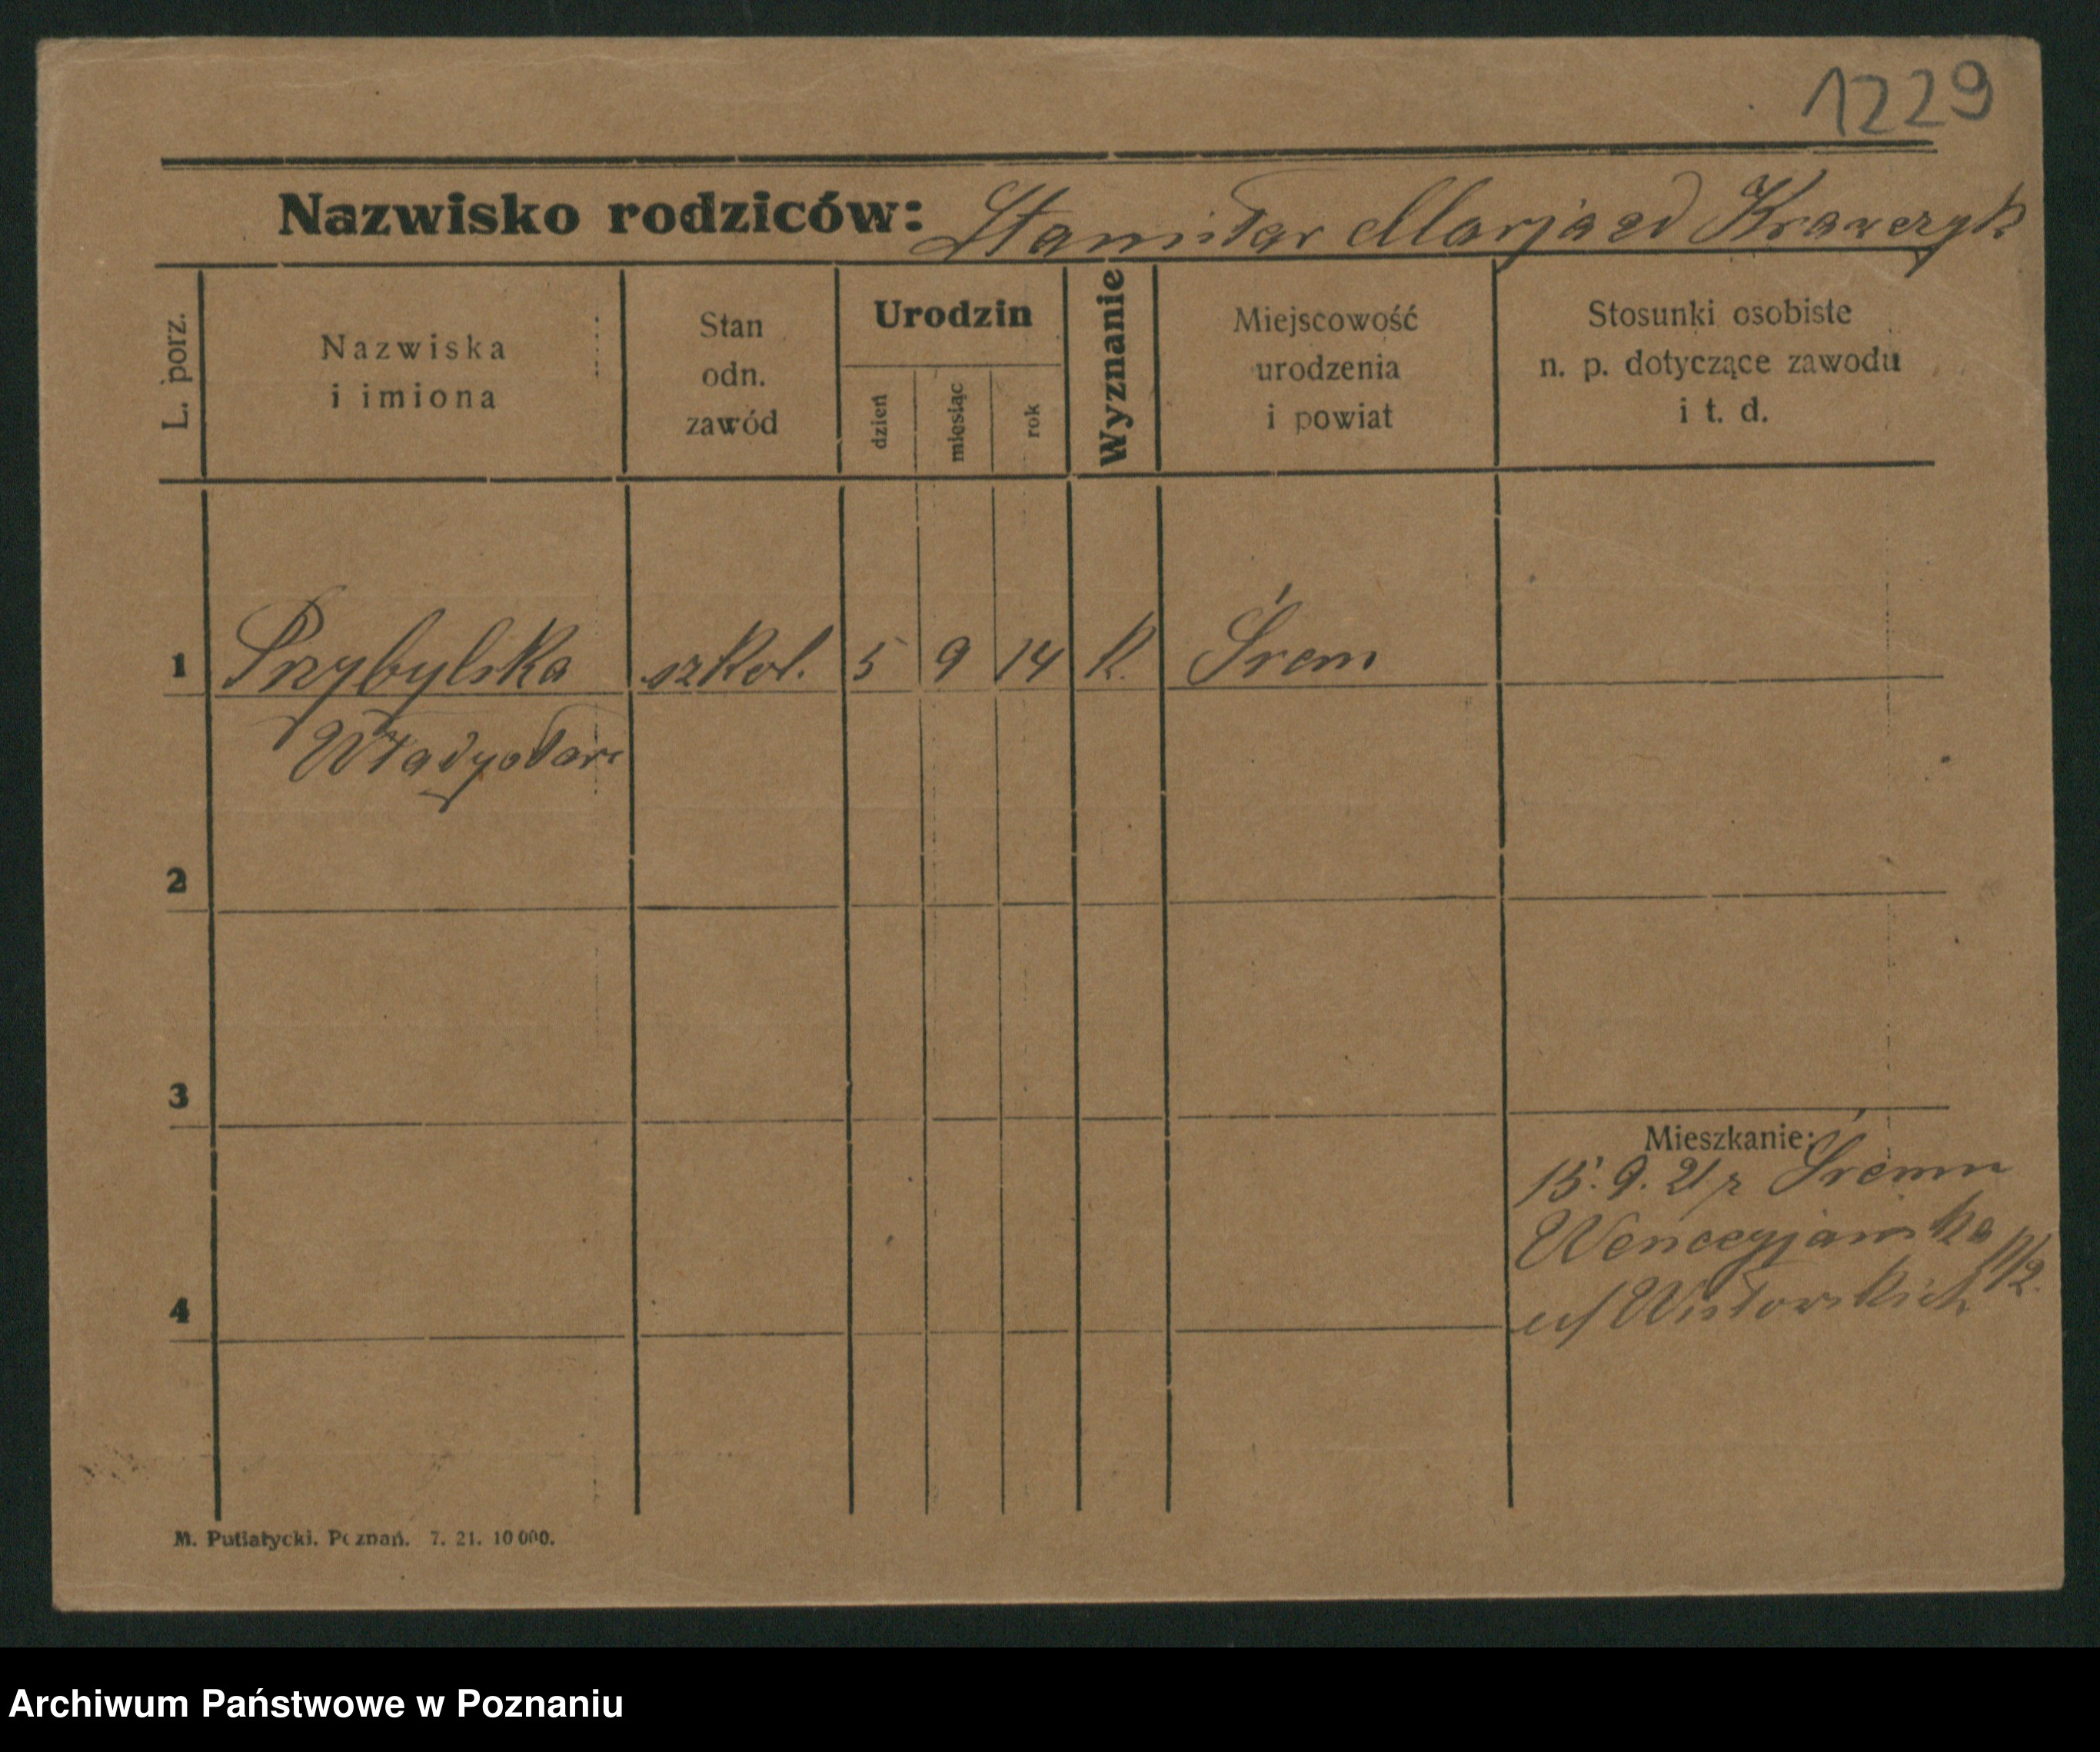 1229
Nazwisko rodziców: Stanisław Marja zd Krawczyk
L. porz.
Nazwiska
i imiona
Stan
odn.
zawód
Urodzin
dzień
miesiąc
rok
Wyznanie
Miejscowość
urodzenia
i powiat
Stosunki osobiste
n. p. dotyczące zawodu
i t. d.
1 Przybylska szkol. 5 9 14 k. Śrem
Władysława
2
3
Mieszkanie:
15. 9. 21 z Śremu
11/2.
4
M. Putiatycki. Poznań. 7. 21. 10 000.
Archiwum Państwowe w Poznaniu